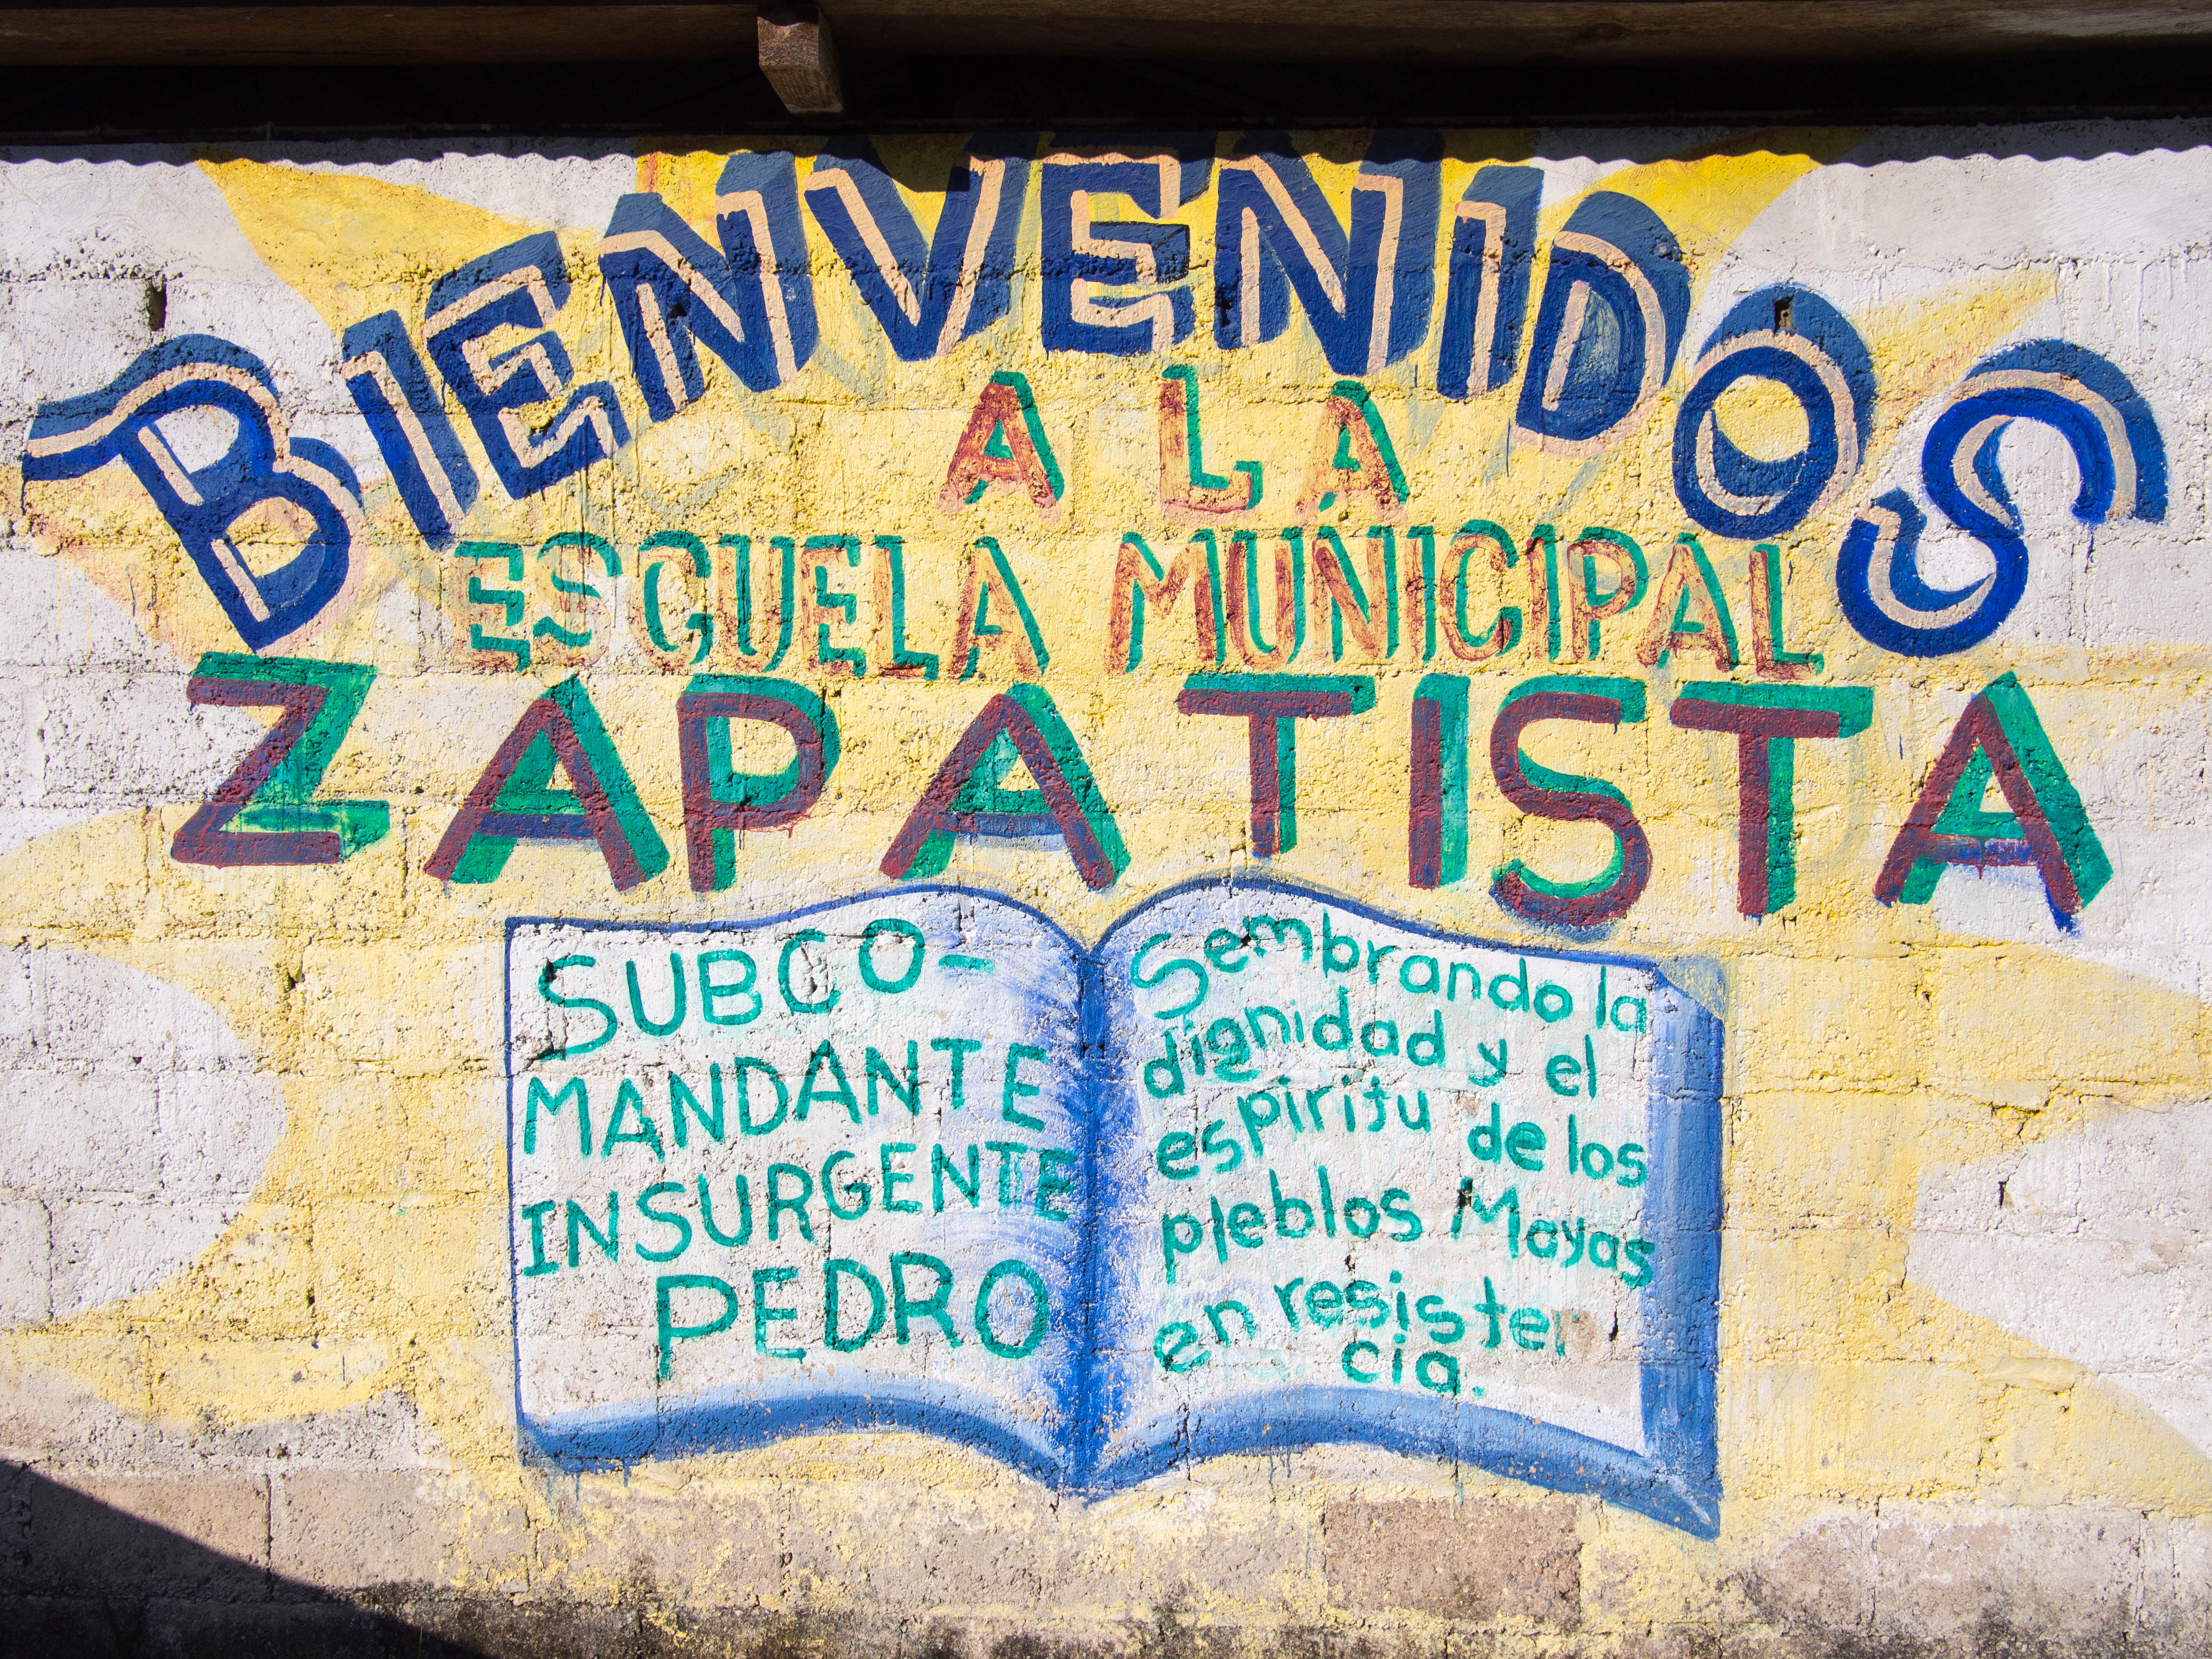 BIENVENIDOS
A LA
ESCUELA MUNICIPAL
ZAPATISTA
SUBCO-
MANDANTE
INSURGENTE
PEDRO
Sembrando la
dignidad y el
espiritu de los
pleblos Mayas
en resisten
cia.